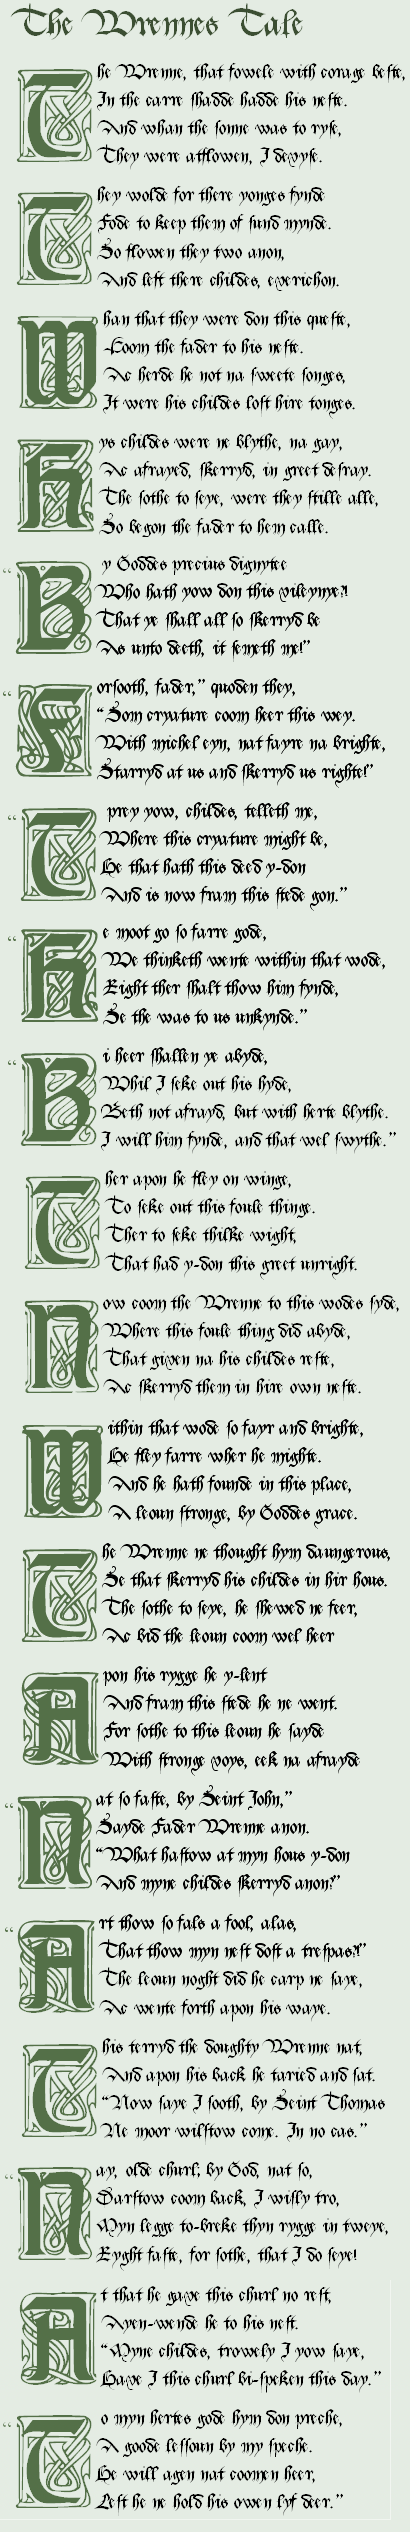 The Wrennes Tale
The Wrenne, that fowele with corage beste,
In the carre shadde hadde his neste.
And whan the sonne was to ryse,
They were atflowen, I devyse.
They wolde for there yonges fynde
Fode to keep them of sund mynde.
So flowen they two anon,
And left there childes, everichon.
Whan that they were don this queste,
Coom the fader to his neste.
Ac herde he not na sweete songes,
It were his childes lost hire tonges.
Hys childes were ne blythe, na gay,
Ac afrayed, skerryd, in greet desray.
The sothe to seye, were they stille alle,
So begon the fader to hem calle.
“By Goddes precius dignytee
Who hath yow don this vileynye?!
That ye shall all so skerryd be
As unto deeth, it semeth me!”
“Forsooth, fader,” quoden they,
“Som cryature coom heer this wey.
With michel eyn, nat fayre na brighte,
Starryd at us and skerryd us righte!”
“T prey yow, childes, telleth me,
Where this cryature might be,
He that hath this deed y-don
And is now fram this stede gon.”
“He moot go so farre gode,
We thinketh wente within that wode,
Eight ther shalt thow him fynde,
Se the was to us unkynde.”
“Bi heer shallen ye abyde,
Whil I seke out his hyde,
Beth not afrayd, but with herte blythe.
I will him fynde, and that wel swythe.”
Ther apon he fley on winge,
To seke out this foule thinge.
Ther to seke thilke wight,
That had y-don this greet unright.
Now coom the Wrenne to this wodes syde,
Where this foule thing did abyde,
That given na his childes reste,
Ac skerryd them in hire own neste.
Within that wode so fayr and brighte,
He fley farre wher he mighte.
And he hath founde in this place,
A leoun stronge, by Goddes grace.
The Wrenne ne thought hym daungerous,
Se that skerryd his childes in hir hous.
The sothe to seye, he shewed ne feer,
Ac bid the leoun coom wel heer
Apon his rygge he y-lent
And fram this stede he ne went.
For sothe to this leoun he sayde
With stronge voys, eek na afrayde
“Nat so faste, by Seint John,”
Sayde Fader Wrenne anon.
“What hastow at myn hous y-don
And myne childes skerryd anon?”
“Art thow so fals a fool, alas,
That thow myn nest dost a trespas?!”
The leoun noght did he carp ne saye,
Ac wente forth apon his waye.
This terryd the doughty Wrenne nat,
And apon his back he taried and sat.
“Now saye I sooth, by Seint Thomas
Ne moor wilstow come. In no cas.”
“Nay, olde churl; by God, nat so,
Darstow coom back, I wisly tro,
Myn legge to-breke thyn rygge in tweye,
Eyght faste, for sothe, that I do seye!
At that he gave this churl no rest,
Ayen-wende he to his nest.
“Myne childes, trowely I yow saye,
Have I this churl bi-speken this day.”
“To myn hertes gode hym don preche,
A goode lessoun by my speche.
He will agen nat coomen heer,
Lest he ne hold his owen lyf deer.”